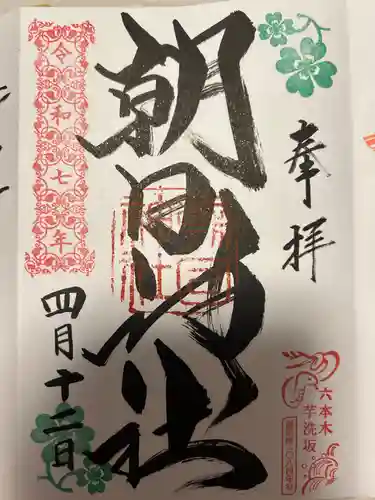 奉拝
六本木
芋洗坂
朝日神社
令和七年
四月十二日